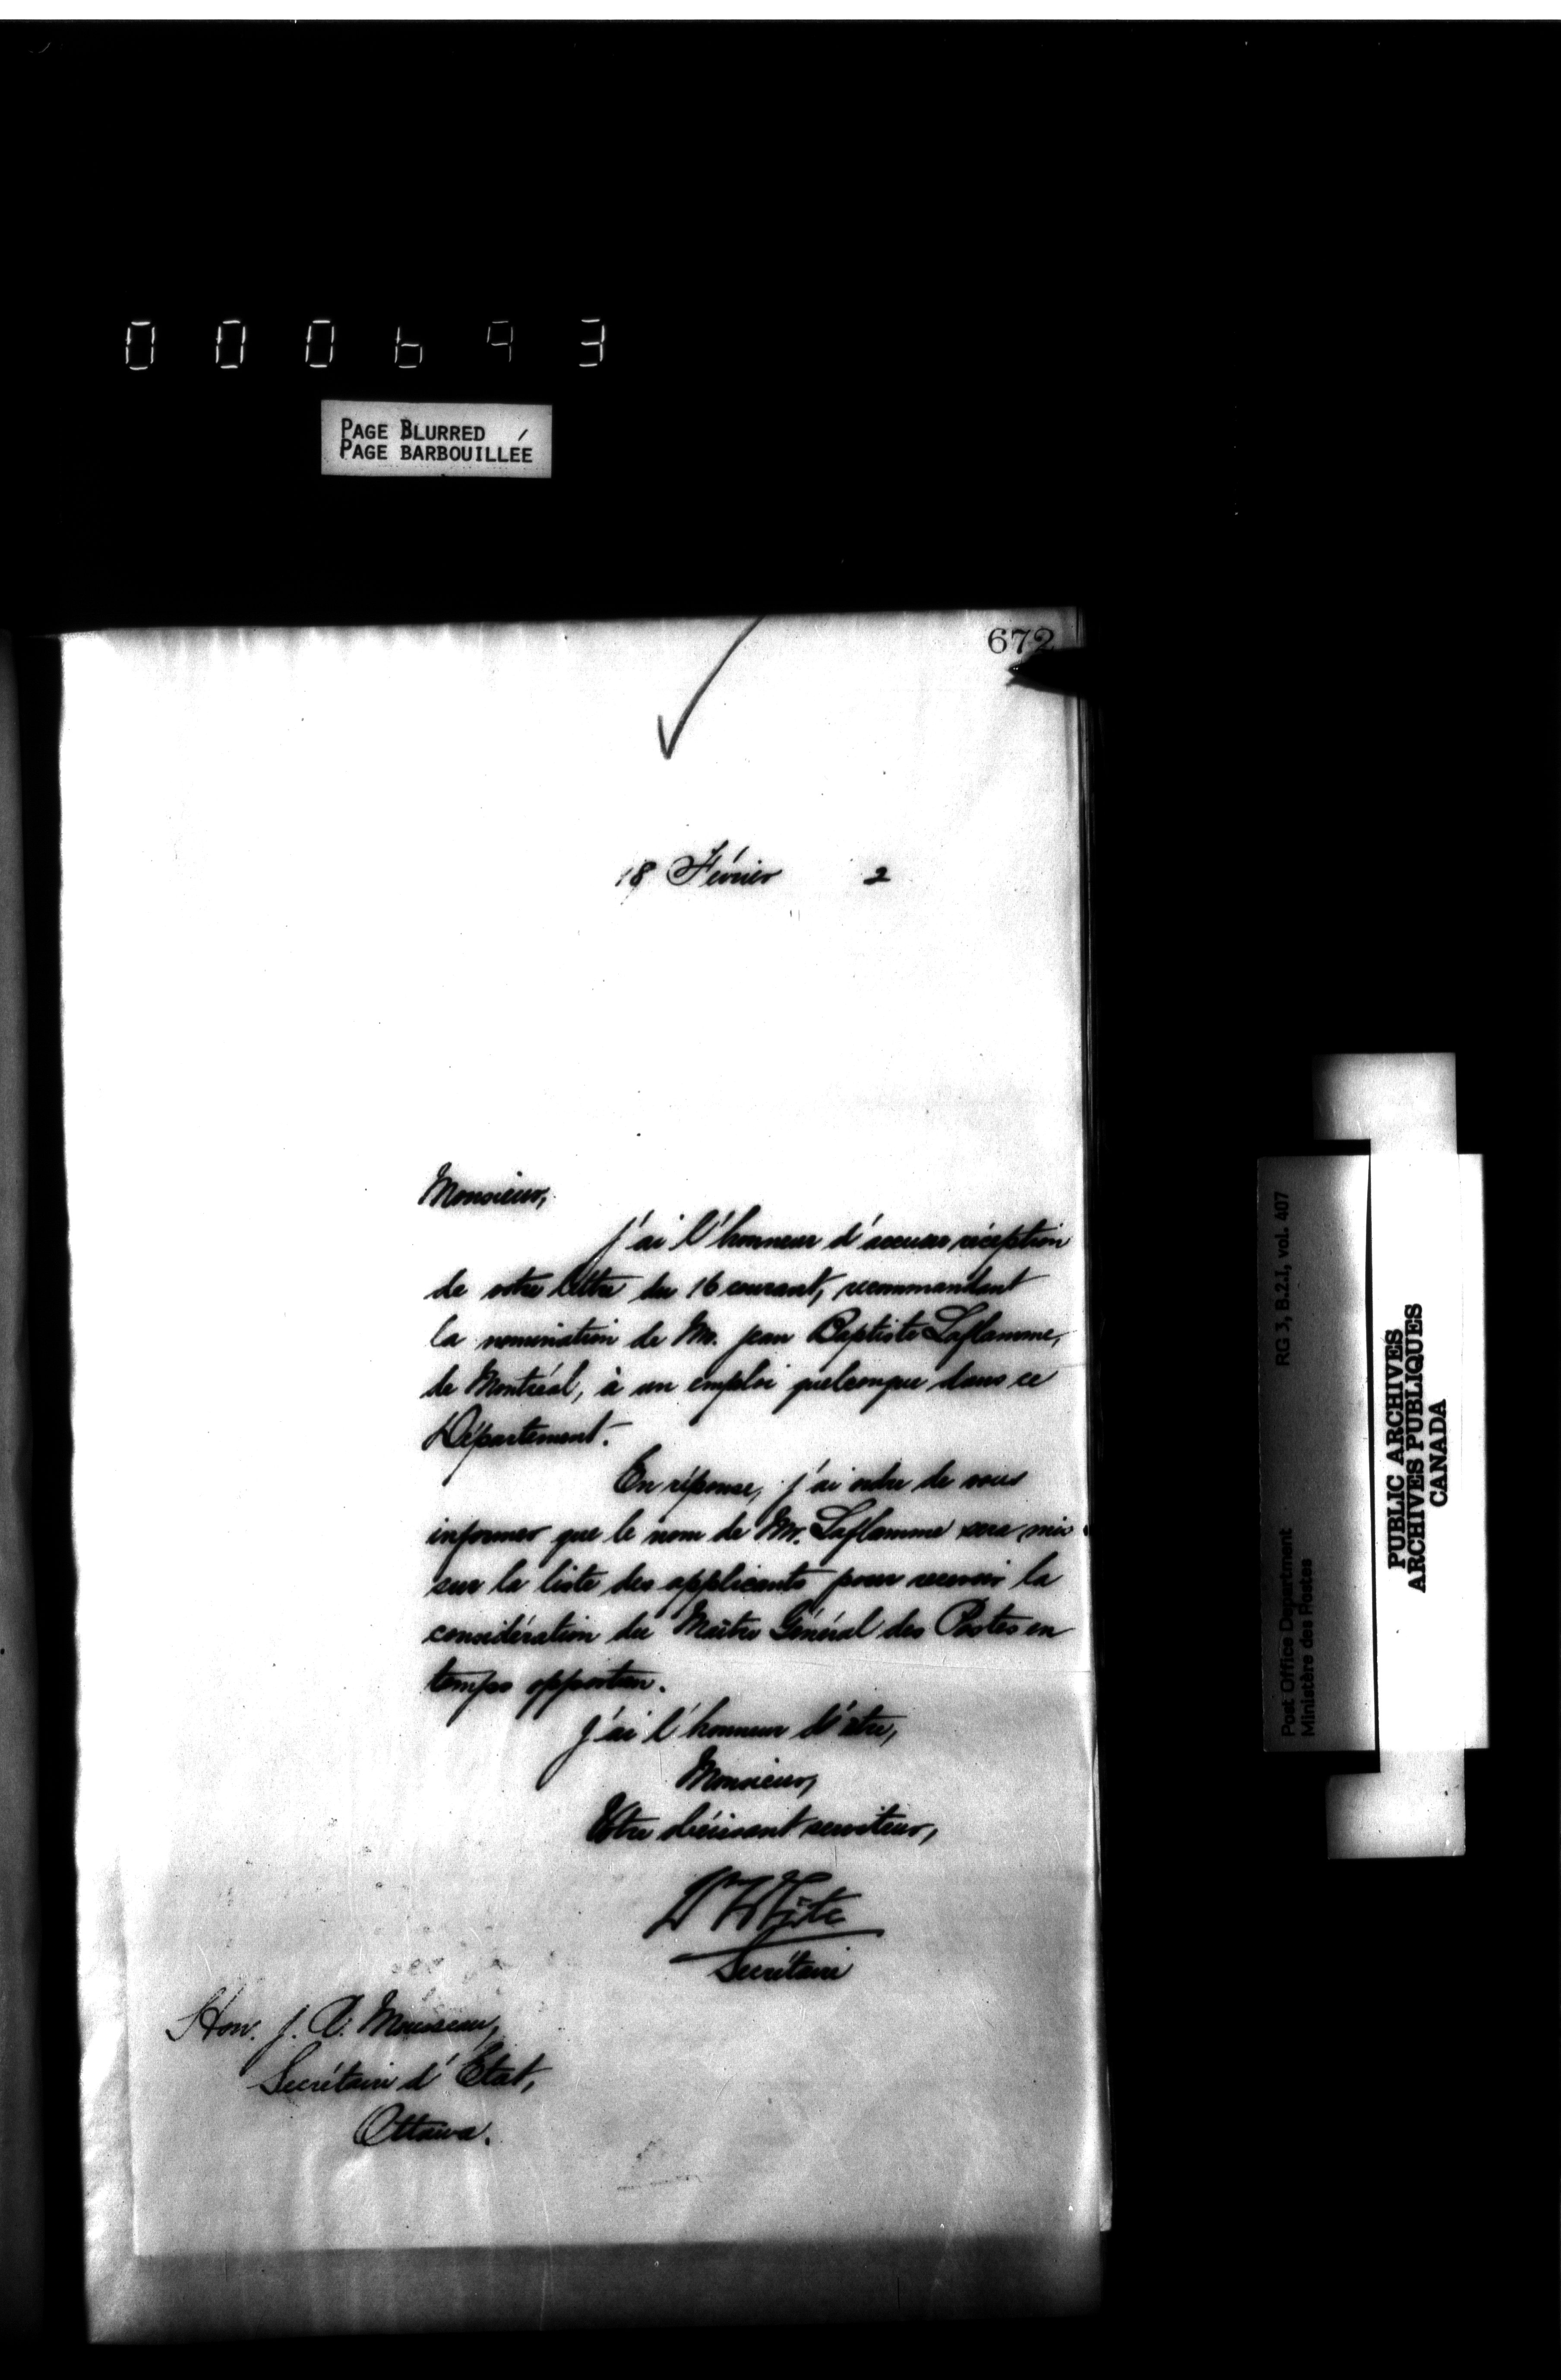 000693
PAGE BLURRED
PAGE BARBOUILLÉE
672
18 Février 2
Monsieur,
J'ai l'honneur d'accuser réception
de votre lettre du 16 courant, recommandant
la nomination de Mr. Jean Baptiste Laflamme,
de Montréal, à un emploi quelconque dans ce
Département.
En réponse, j'ai ordre de vous
informer que le nom de Mr. Laflamme sera mis
sur la liste des applicants pour recevoir la
considération du Maître Général des Postes en
temps opportun.
J'ai l'honneur d'être,
Monsieur,
Votre obéissant serviteur,
Wm White
Secrétaire
Hon. J. A. Mousseau,
Secrétaire d'État,
Ottawa.
Post Office Department RG 3, B.2.1, vol. 407
Ministère des Postes
PUBLIC ARCHIVES
ARCHIVES PUBLIQUES
CANADA